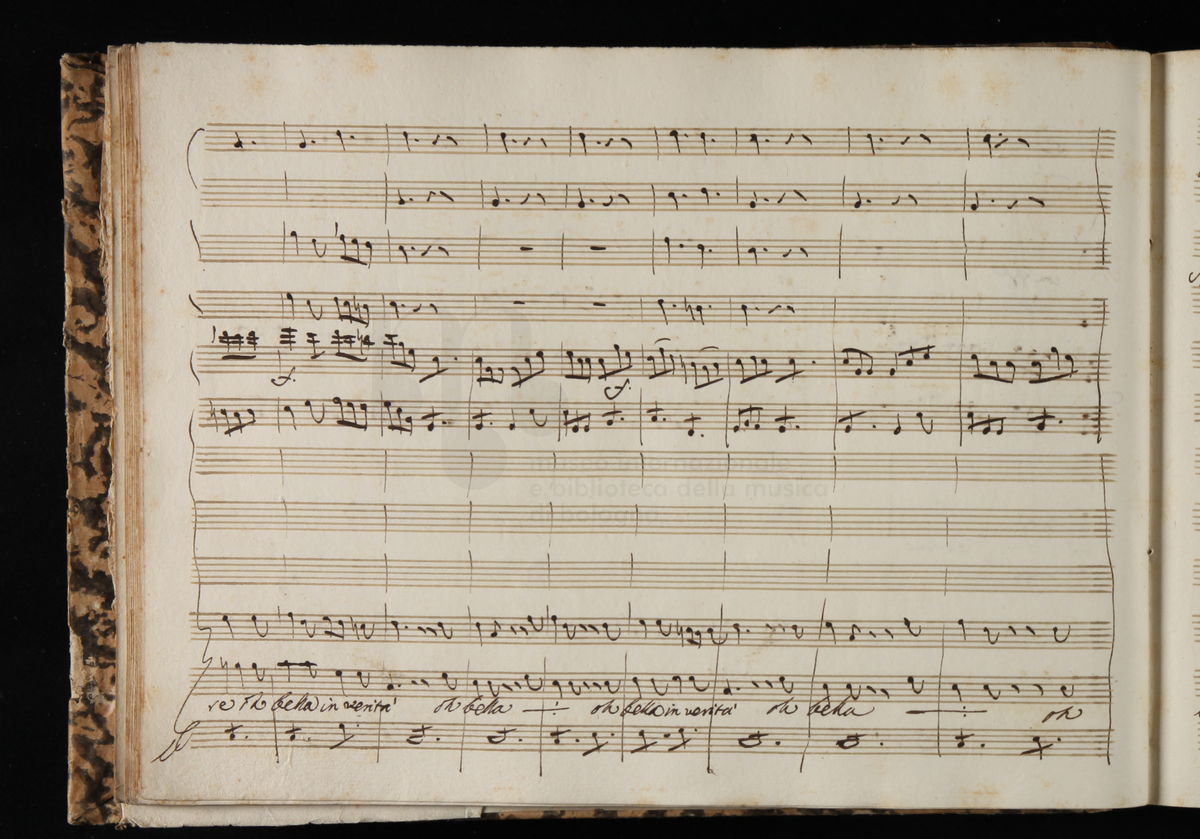 f.
f.
museo internazionale
e biblioteca della musica
di bologna
re oh bella in verita' oh bella oh bella in verita' oh bella oh